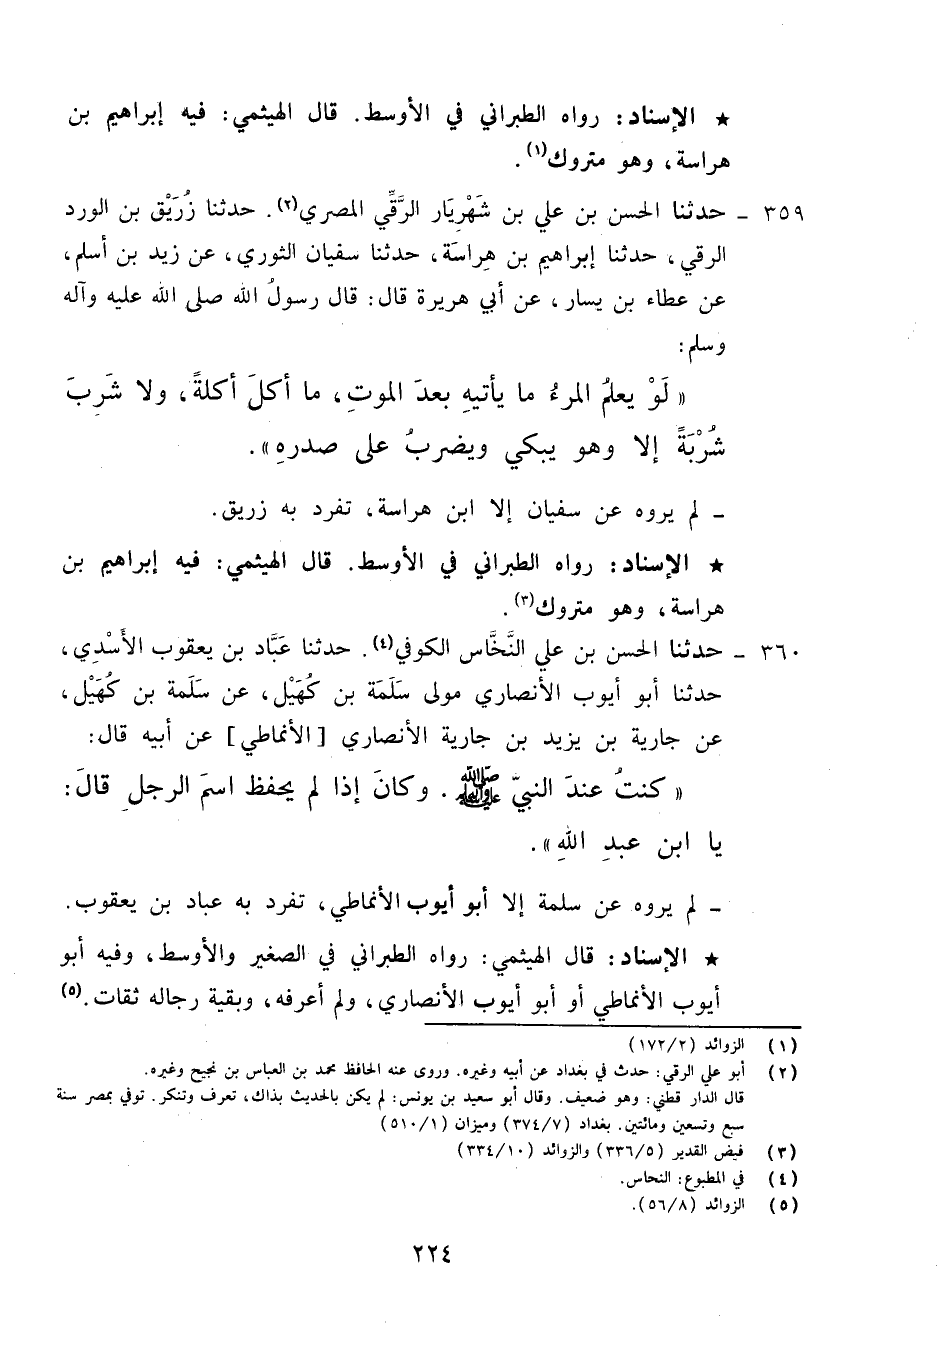 ★ الإسناد: رواه الطبراني في الأوسط. قال الهيثمي: فيه إبراهيم بن
هراسة، وهو متروك(١).
٣٥٩ - حدثنا الحسن بن علي بن شَهْرِيَار الرَّقِّي المصري(٢). حدثنا زُرَيْق بن الورد
الرقي، حدثنا إبراهيم بن هِراسَة، حدثنا سفيان الثوري، عن زيد بن أسلم،
عن عطاء بن يسار، عن أبي هريرة قال: قال رسولُ الله صلى الله عليه وآله
وسلم:
« لَوْ يعلمُ المرءُ ما يأتيهِ بعدَ الموتِ، ما أكلَ أكلةً، ولا شَرِبَ
شُرْبَةً إلا وهو يبكي ويضربُ على صدرهِ».
- لم يروه عن سفيان إلا ابن هراسة، تفرد به زريق.
★ الإسناد: رواه الطبراني في الأوسط. قال الهيثمي: فيه إبراهيم بن
هراسة، وهو متروك(٣).
٣٦٠ - حدثنا الحسن بن علي النَّخَّاس الكوفي(٤). حدثنا عَبَّاد بن يعقوب الأَسْدِي،
حدثنا أبو أيوب الأنصاري مولى سَلَمَة بن كُهَيْل، عن سَلَمة بن كُهَيْل،
عن جارية بن يزيد بن جارية الأنصاري [الأنماطي] عن أبيه قال:
« كنتُ عندَ النبيّ ﷺ. وكانَ إذا لم يحفظ اسمَ الرجلِ قالَ:
يا ابن عبدِ اللهِ».
- لم يروه عن سلمة إلا أبو أيوب الأنماطي، تفرد به عباد بن يعقوب.
★ الإسناد: قال الهيثمي: رواه الطبراني في الصغير والأوسط، وفيه أبو
أيوب الأنماطي أو أبو أيوب الأنصاري، ولم أعرفه، وبقية رجاله ثقات.(٥)
(١) الزوائد (١٧٢/٢)
(٢) أبو علي الرقي: حدث في بغداد عن أبيه وغيره. وروى عنه الحافظ محمد بن العباس بن نجيح وغيره.
قال الدار قطني: وهو ضعيف. وقال أبو سعيد بن يونس: لم يكن بالحديث بذاك، تعرف وتنكر. توفي بمصر سنة
سبع وتسعين ومائتين. بغداد (٣٧٤/٧) وميزان (٥١٠/١)
(٣) فيض القدير (٣٣٦/٥) والزوائد (٣٣٤/١٠)
(٤) في المطبوع: النحاس.
(٥) الزوائد (٥٦/٨).
٢٢٤